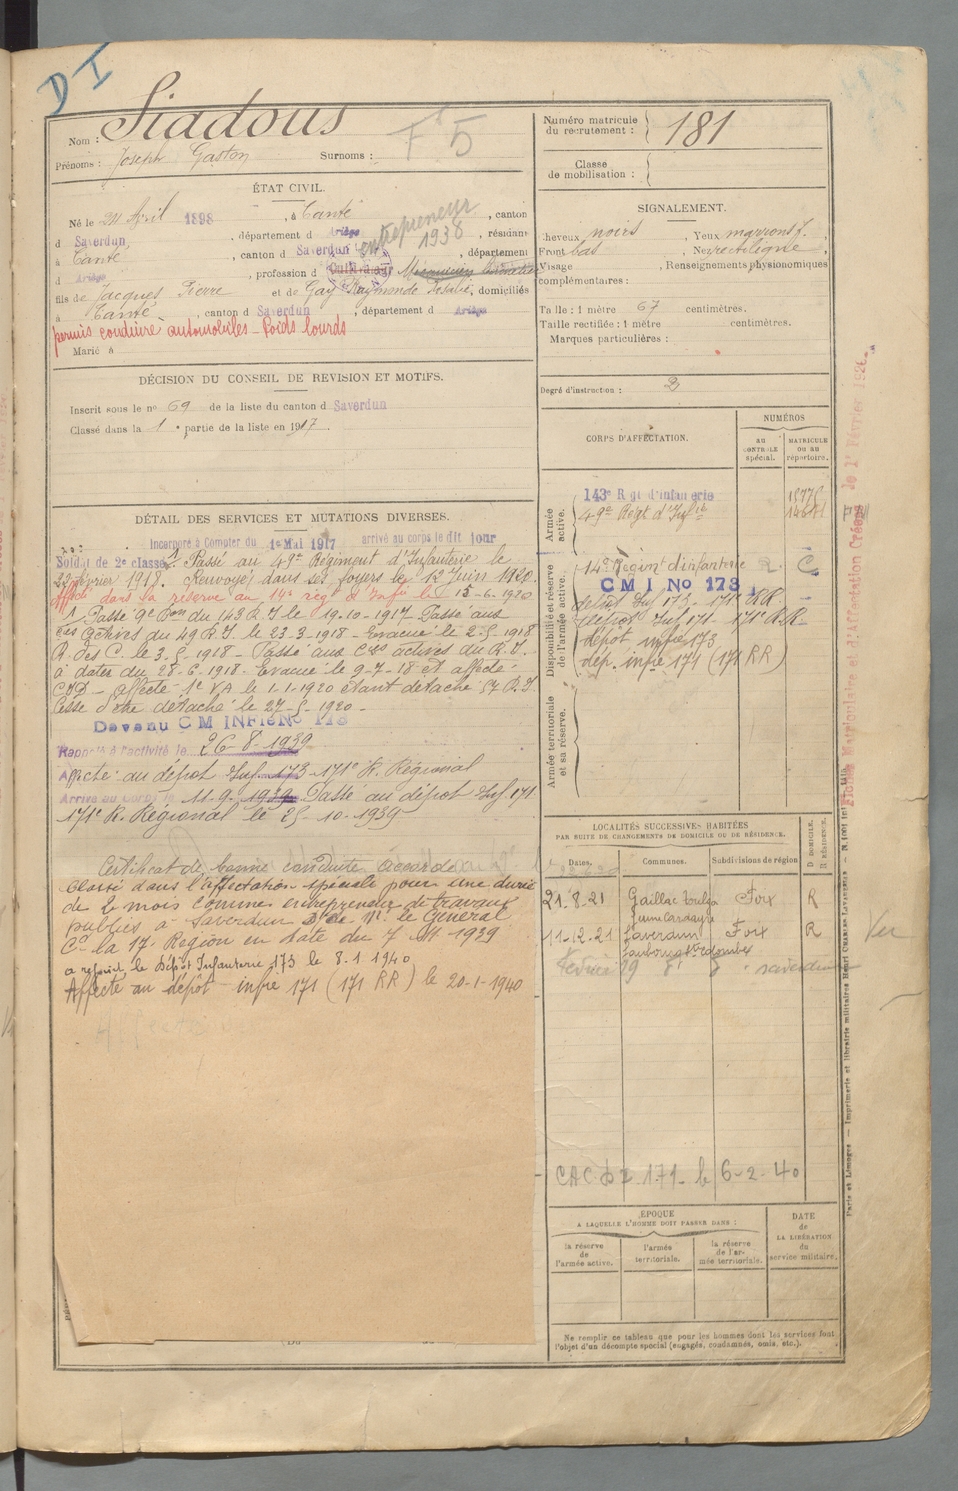 D I
Nom : Siadous
Prénoms : Joseph Gaston Surnoms :
F 5
Numéro matricule du recrutement : 181
Classe de mobilisation :
ÉTAT CIVIL.
Né le 24 Avril 1898, à Canté, canton
d Saverdun, département d Ariège, résidant
à Canté, canton d Saverdun, département
entrepreneur 1938
d Ariège, profession d Cultivateur
fils de Jacques Pierre et de Gay Raymonde Rosalie, domiciliés
à Canté, canton d Saverdun, département d Ariège
permis conduire automobiles - Poids lourds
Marié à
SIGNALEMENT.
Cheveux noirs, Yeux marrons f.,
Front bas, Nez rectiligne,
Visage , Renseignements physionomiques
complémentaires :
Taille : 1 mètre 67 centimètres.
Taille rectifiée : 1 mètre centimètres.
Marques particulières :
Degré d'instruction : 2
DÉCISION DU CONSEIL DE REVISION ET MOTIFS.
Inscrit sous le no 69 de la liste du canton d Saverdun
Classé dans la 1e partie de la liste en 1917.
DÉTAIL DES SERVICES ET MUTATIONS DIVERSES.
Incorporé à Compter du 1er Mai 1917 arrivé au corps le dit jour
Soldat de 2e classe. Passé au 49e Régiment d'Infanterie le
22 février 1918. Renvoyé dans ses foyers le 12 Juin 1920.
Affecté dans la réserve au 14e rég t d'Infie le 13-6-1920
Passé 9e Bon du 143 R.I le 19.10-1917 Passé aux
Cies actives du 49 R.I. le 23-3-1918 - Evacué le 2-5-1918
R. des C. le 3.5-1918 - Passé aux Cies actives du R.I.
à dater du 28-6-1918. Evacué le 9-7-18 et affecté
CID - affecté 1e VA le 1.1-1920 étant détaché 57 R.I.
Cesse d'être détaché le 27-5-1920 -
Devenu C M INFie No 173
Rappelé à l'activité le 26-8-1939
Affecté : au dépôt Inf. 173 - 171e R. Régional
Arrivé au corps le 11-9-1939 Passé au dépôt Inf 171.
171e R. Régional le 25-10-1939
Certificat de bonne conduite accordé
Classé dans l'affectation spéciale pour une durée
de 2 mois comme entrepreneur de travaux
publics à Saverdun le Général
Ct la 17e Region en date du 7-11-1939
a rejoint le Dépôt Infanterie 173 le 8.1 1940
Affecté au dépôt infie 171 (171 RR) le 20-1-1940
CORPS D'AFFECTATION.
NUMÉROS
AU CONTROLE spécial.
MATRICULE OU AU répertoire.
Armée active.
143e Rgt d'infanterie
49e Régt d'Infie
Disponibilité et réserve de l'armée active.
14e Régim d'infanterie
C M I No 173
dépôt Inf 173 - 171e RR
dépôt Inf 171 - 171e R.R.
dépôt infie 173
dép. infie 171 (171 RR)
Armée territoriale et sa réserve.
LOCALITÉS SUCCESSIVES HABITÉES
PAR SUITE DE CHANGEMENTS DE DOMICILE OU DE RÉSIDENCE.
Dates. Communes. Subdivisions de région D DOMICILE. R RÉSIDENCE.
21-8-21 Gaillac Toulza Foix R
11-12-21 Saverdun Foix R
CAC D 2 171 - le 6-2-40
ÉPOQUE
A LAQUELLE L'HOMME DOIT PASSER DANS :
la réserve de l'armée active.
l'armée territoriale.
la réserve de l'armée territoriale.
DATE de LA LIBÉRATION du service militaire.
Ne remplir ce tableau que pour les hommes dont les services font
l'objet d'un décompte spécial (engagés, condamnés, omis, etc.).
Fiche Matriculaire et d'Affectation Créées le 1er Février 1926.
Paris et Limoges — Imprimerie et librairie militaires Henri CHARLES-LAVAUZELLE